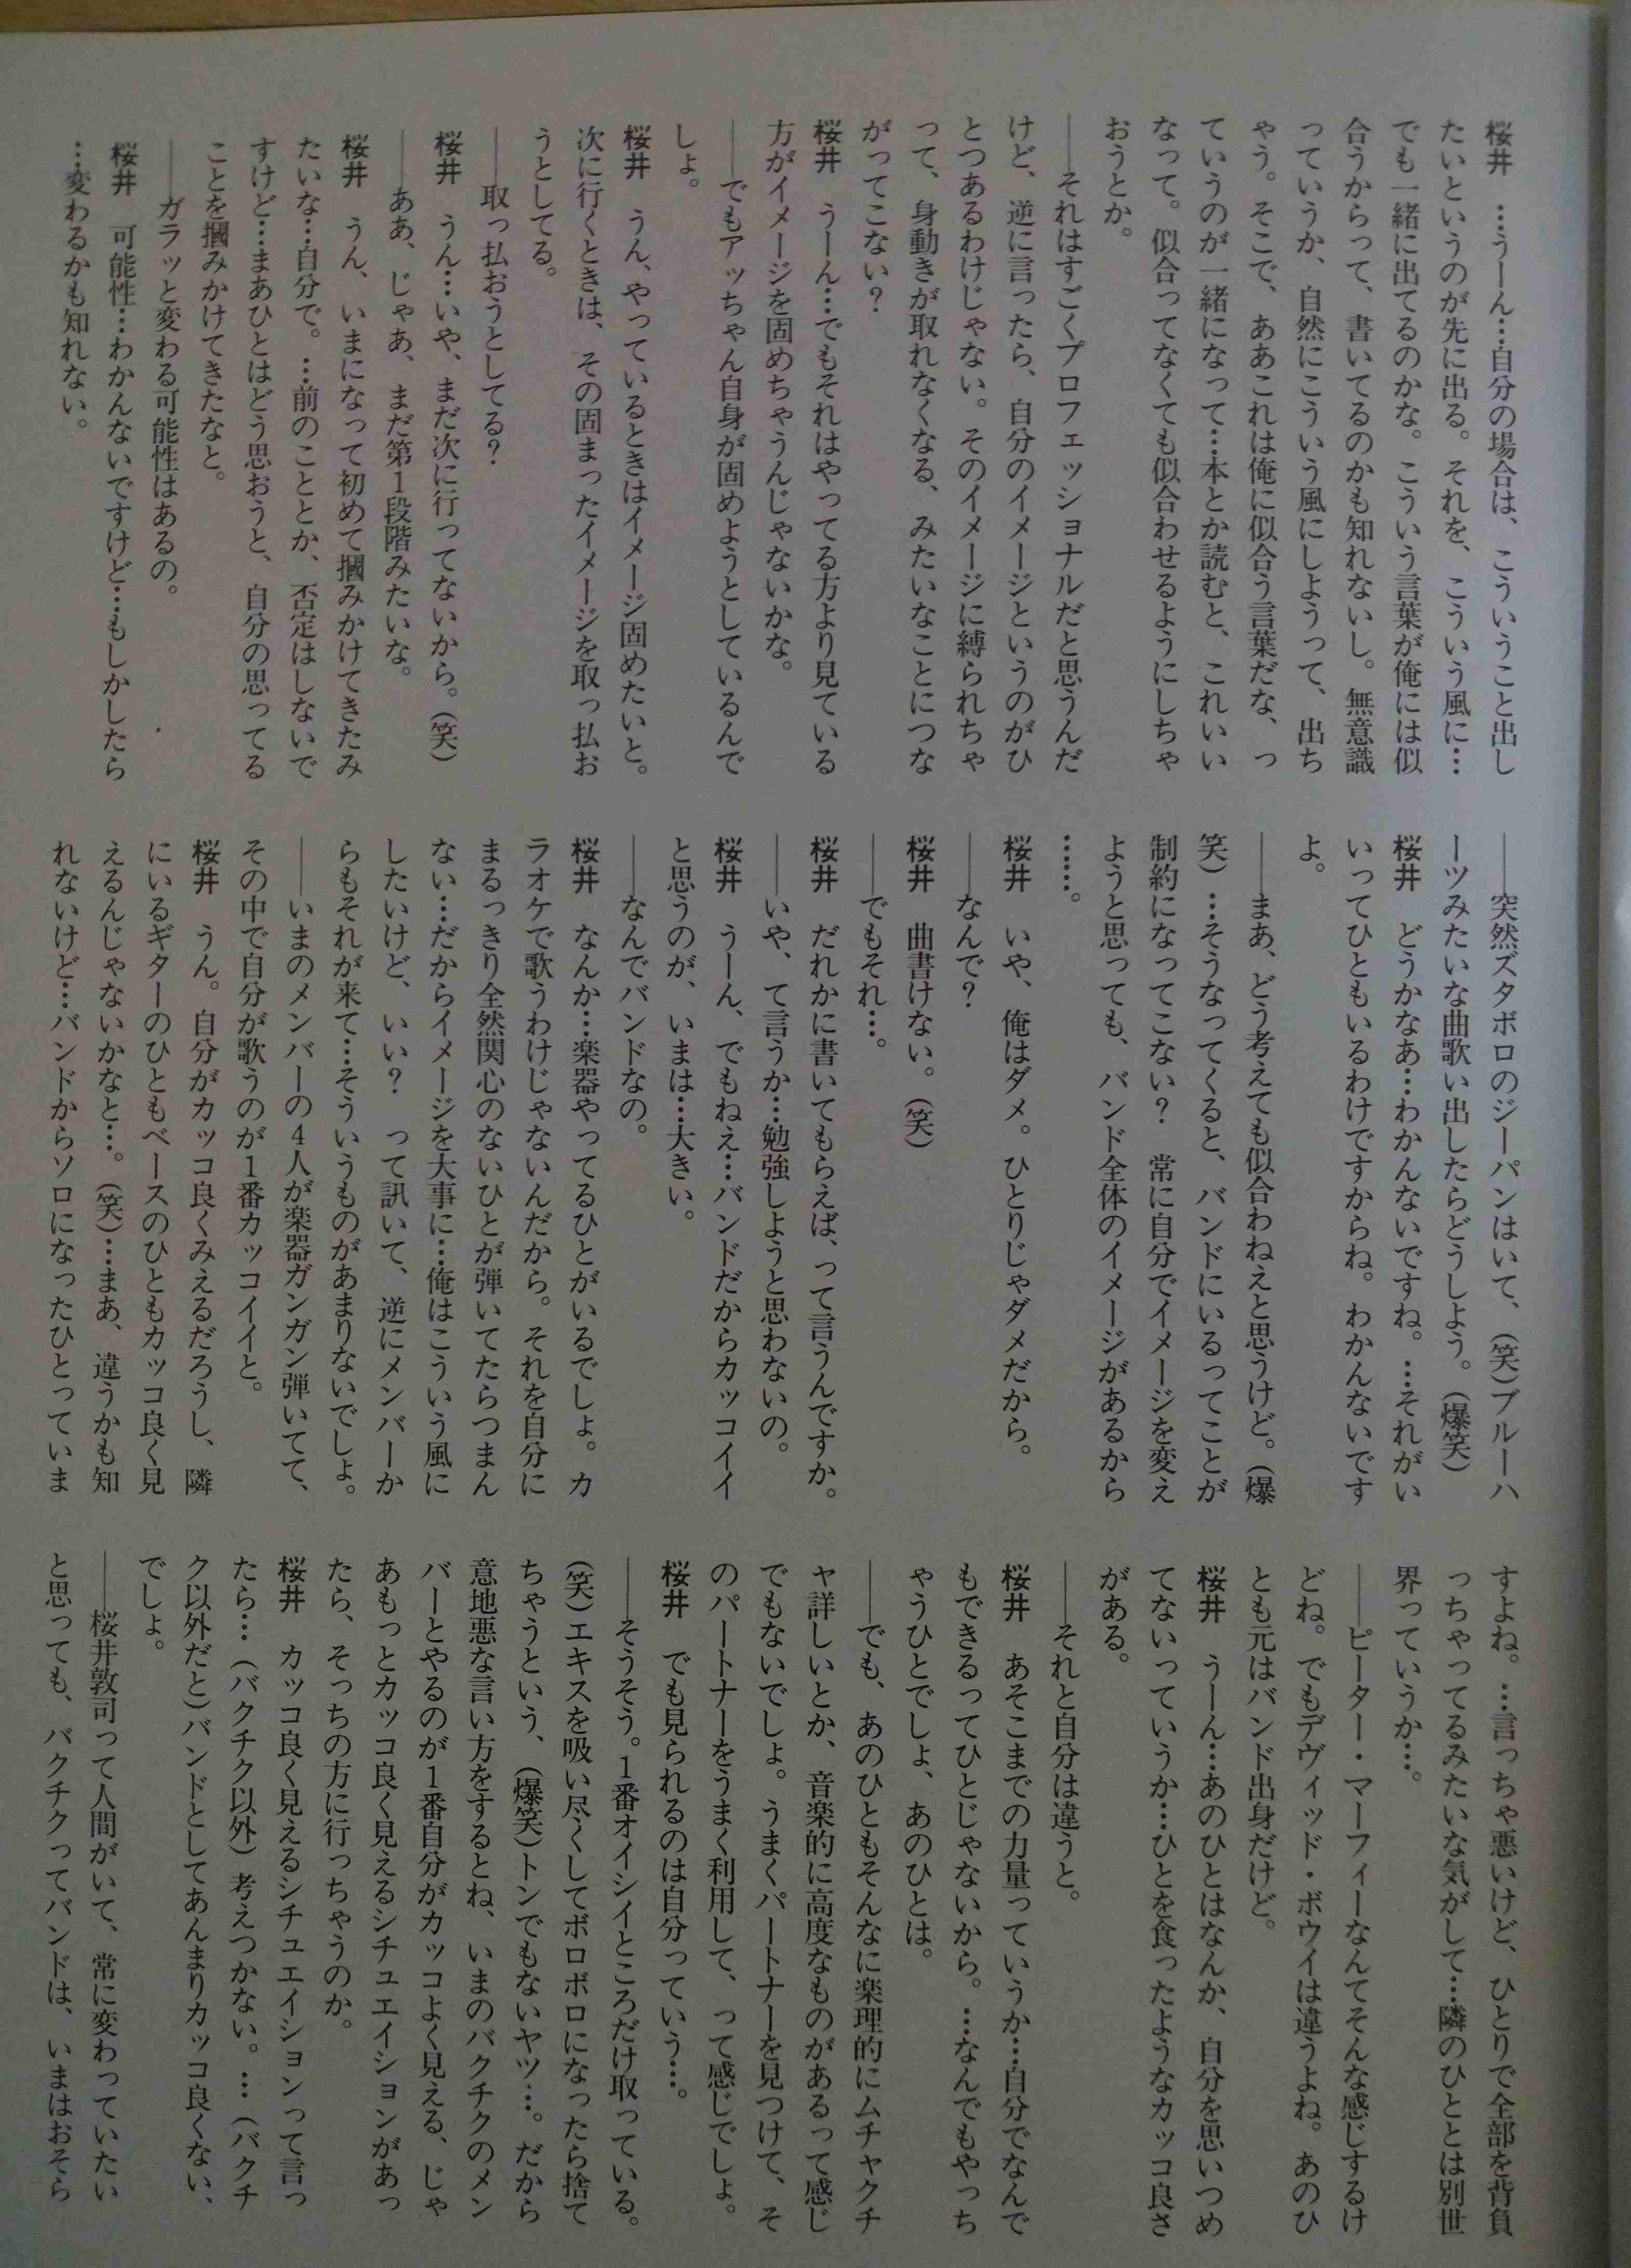 桜井　…うーん…自分の場合は、こういうこと出し
たいというのが先に出る。それを、こういう風に…
でも一緒に出てるのかな。こういう言葉が俺には似
合うからって、書いてるのかも知れないし。無意識
っていうか、自然にこういう風にしようって、出ち
ゃう。そこで、ああこれは俺に似合う言葉だな、っ
ていうのが一緒になって…本とか読むと、これいい
なって。似合ってなくても似合わせるようにしちゃ
おうとか。
――それはすごくプロフェッショナルだと思うんだ
けど、逆に言ったら、自分のイメージというのがひ
とつあるわけじゃない。そのイメージに縛られちゃ
って、身動きが取れなくなる、みたいなことにつな
がってこない？
桜井　うーん…でもそれはやってる方より見ている
方がイメージを固めちゃうんじゃないかな。
――でもアッちゃん自身が固めようとしているんで
しょ。
桜井　うん、やっているときはイメージ固めたいと。
次に行くときは、その固まったイメージを取っ払お
うとしてる。
――取っ払おうとしてる？
桜井　うん…いや、まだ次に行ってないから。（笑）
――ああ、じゃあ、まだ第１段階みたいな。
桜井　うん、いまになって初めて摑みかけてきたみ
たいな…自分で。…前のこととか、否定はしないで
すけど…まあひとはどう思おうと、自分の思ってる
ことを摑みかけてきたなと。
――ガラッと変わる可能性はあるの。
桜井　可能性…わかんないですけど…もしかしたら
…変わるかも知れない。
――突然ズタボロのジーパンはいて、（笑）ブルーハ
ーツみたいな曲歌い出したらどうしよう。（爆笑）
桜井　どうかなあ…わかんないですね。…それがい
いってひともいるわけですからね。わかんないです
よ。
――まあ、どう考えても似合わねえと思うけど。（爆
笑）…そうなってくると、バンドにいるってことが
制約になってこない？　常に自分でイメージを変え
ようと思っても、バンド全体のイメージがあるから
……。
桜井　いや、俺はダメ。ひとりじゃダメだから。
――なんで？
桜井　曲書けない。（笑）
――でもそれ…。
桜井　だれかに書いてもらえば、って言うんですか。
――いや、て言うか…勉強しようと思わないの。
桜井　うーん、でもねえ…バンドだからカッコイイ
と思うのが、いまは…大きい。
――なんでバンドなの。
桜井　なんか…楽器やってるひとがいるでしょ。カ
ラオケで歌うわけじゃないんだから。それを自分に
まるっきり全然関心のないひとが弾いてたらつまん
ない…だからイメージを大事に…俺はこういう風に
したいけど、いい？　って訊いて、逆にメンバーか
らもそれが来て…そういうものがあまりないでしょ。
――いまのメンバーの４人が楽器ガンガン弾いてて、
その中で自分が歌うのが１番カッコイイと。
桜井　うん。自分がカッコ良くみえるだろうし、隣
にいるギターのひともベースのひともカッコ良く見
えるんじゃないかなと…。（笑）…まあ、違うかも知
れないけど…バンドからソロになったひとっていま
すよね。…言っちゃ悪いけど、ひとりで全部を背負
っちゃってるみたいな気がして…隣のひととは別世
界っていうか…。
――ピーター・マーフィーなんてそんな感じするけ
どね。でもデヴィッド・ボウイは違うよね。あのひ
とも元はバンド出身だけど。
桜井　うーん…あのひとはなんか、自分を思いつめ
てないっていうか…ひとを食ったようなカッコ良さ
がある。
――それと自分は違うと。
桜井　あそこまでの力量っていうか…自分でなんで
もできるってひとじゃないから。…なんでもやっち
ゃうひとでしょ、あのひとは。
――でも、あのひともそんなに楽理的にムチャクチ
ャ詳しいとか、音楽的に高度なものがあるって感じ
でもないでしょ。うまくパートナーを見つけて、そ
のパートナーをうまく利用して、って感じでしょ。
桜井　でも見られるのは自分っていう…。
――そうそう。１番オイシイところだけ取っている。
（笑）エキスを吸い尽くしてボロボロになったら捨て
ちゃうという、（爆笑）トンでもないヤツ…。だから
意地悪な言い方をするとね、いまのバクチクのメン
バーとやるのが１番自分がカッコよく見える、じゃ
あもっとカッコ良く見えるシチュエイションがあっ
たら、そっちの方に行っちゃうのか。
桜井　カッコ良く見えるシチュエイションって言っ
たら…（バクチク以外）考えつかない。…（バクチ
ク以外だと）バンドとしてあんまりカッコ良くない、
でしょ。
――桜井敦司って人間がいて、常に変わっていたい
と思っても、バクチクってバンドは、いまはおそら